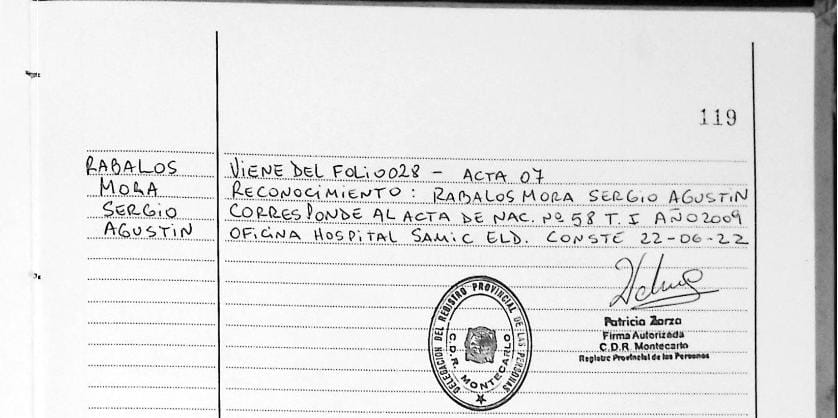 119
RABALOS
MORA
SERGIO
AGUSTIN
VIENE DEL FOLIO 028 - ACTA 07
RECONOCIMIENTO: RABALOS MORA SERGIO AGUSTIN
CORRESPONDE AL ACTA DE NAC. Nº 58 T. I AÑO 2009
OFICINA HOSPITAL SAMIC ELD. CONSTE 22-06-22
DELEGACION DEL REGISTRO PROVINCIAL DE LAS PERSONAS
C.D.R. MONTECARLO
Patricia Zorzo
Firma Autorizada
C.D.R. Montecarlo
Registro Provincial de las Personas